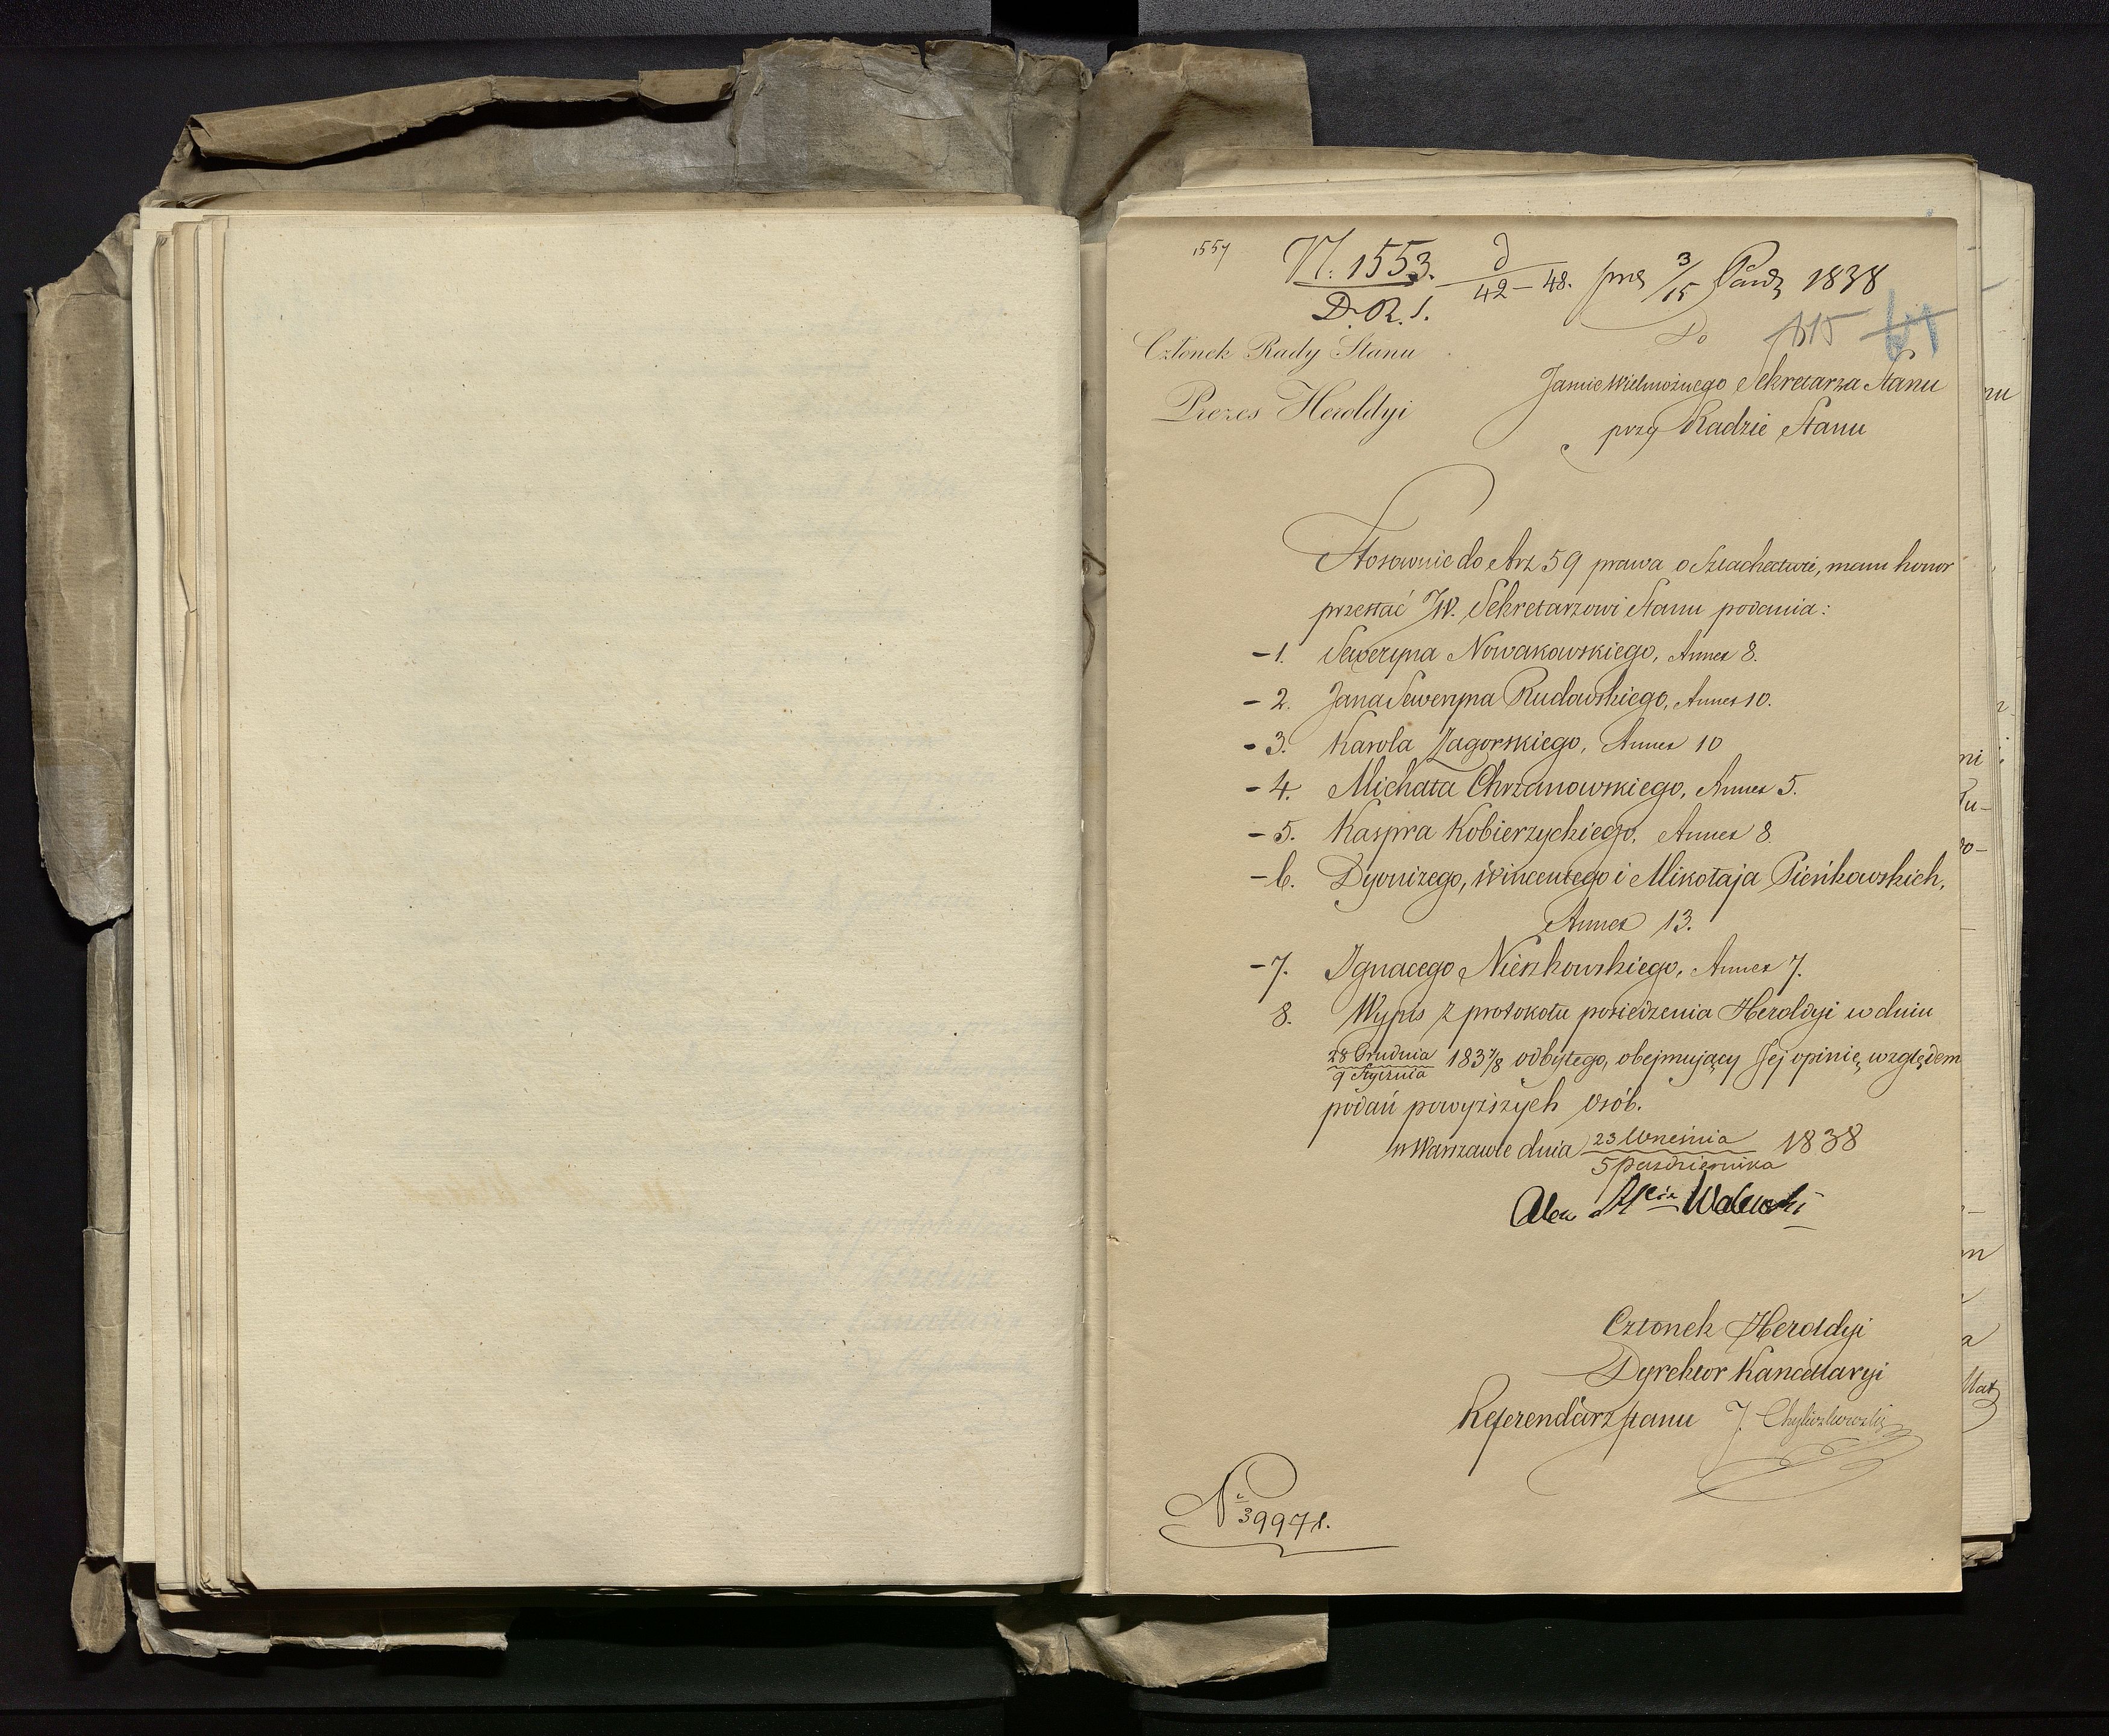 1554
N. 1553. d/42–48. prez 3/15 Paźdz 1838
D. R. S.
Do 615
Członek Rady Stanu
Prezes Heroldyi
Jaśnie Wielmożnego Sekretarza Stanu
przy Radzie Stanu
Stosownie do Art 59 prawa o Szlachectwie, mam honor
przesłać JW. Sekretarzowi Stanu podania:
– 1. Seweryna Nowakowskiego, Annex 8.
– 2. Jana Seweryna Rudawskiego, Annex 10.
– 3. Karola Zagorskiego, Annex 10
– 4. Michała Chrzanowskiego, Annex 5.
– 5. Kaspra Kobierzyckiego, Annex 8.
– 6. Dyonizego, Wincentego i Mikołaja Pieńkowskich,
Annex 13.
– 7. Ignacego Nieszkowskiego, Annex 7.
8. Wypis z protokołu posiedzenia Heroldyi w dniu
28 Grudnia/9 Stycznia 1837/8 odbytego, obejmujący Jej opinię, względem
podań powyższych osób.
w Warszawie dnia 23 Września/5 Października 1838
Alex Walewski
Członek Heroldyi
Dyrektor Kancellaryi
Referendarz Stanu J. Chyliczkowski
N 3997 1.